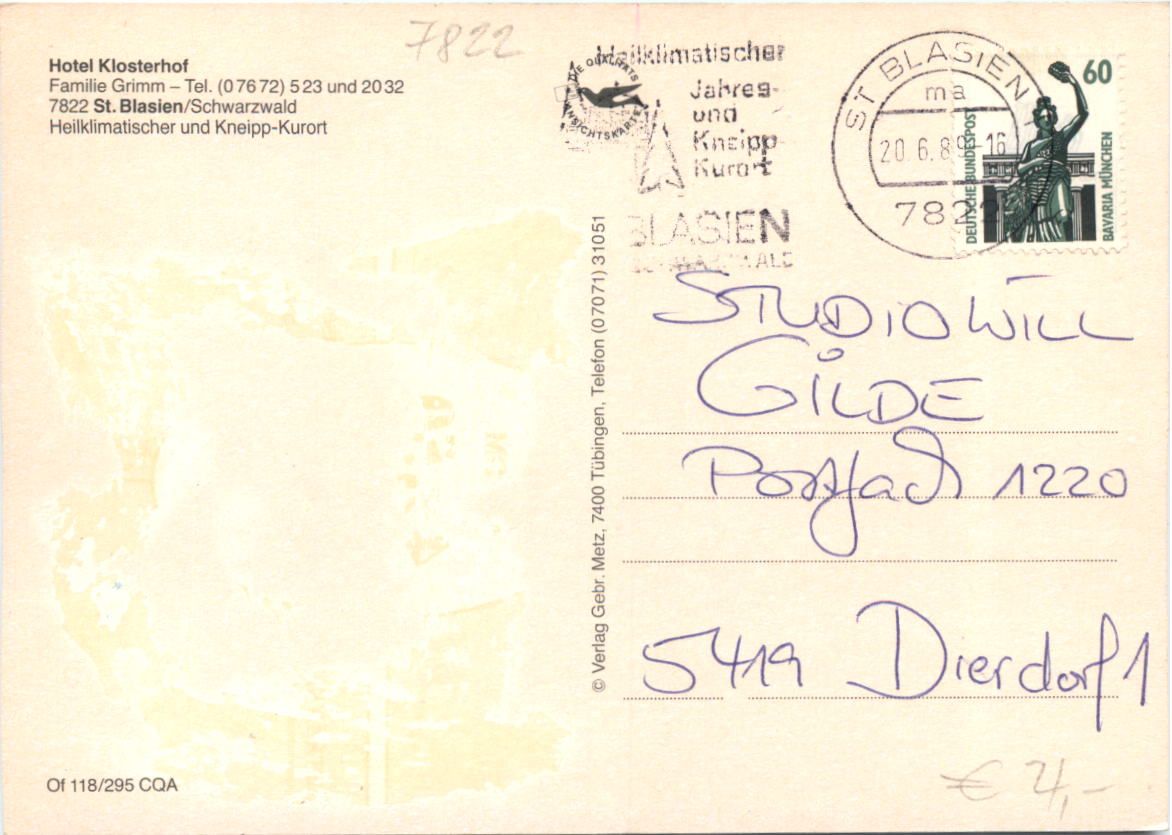 7822
Hotel Klosterhof
Familie Grimm – Tel. (0 76 72) 5 23 und 20 32
7822 St. Blasien/Schwarzwald
Heilklimatischer und Kneipp-Kurort
DIE QUALITÄTS
ANSICHTSKARTE
Heilklimatischer
Jahres-
und
Kneipp-
Kurort
BLASIEN
SCHWARZWALD
ST BLASIEN 1
ma
20.6.89-16
7822
60
DEUTSCHE BUNDESPOST
BAVARIA MÜNCHEN
© Verlag Gebr. Metz, 7400 Tübingen, Telefon (07071) 31051
STUDIO WILL
GILDE
Postfach 1220
5419 Dierdorf 1
Of 118/295 CQA
€ 4,-